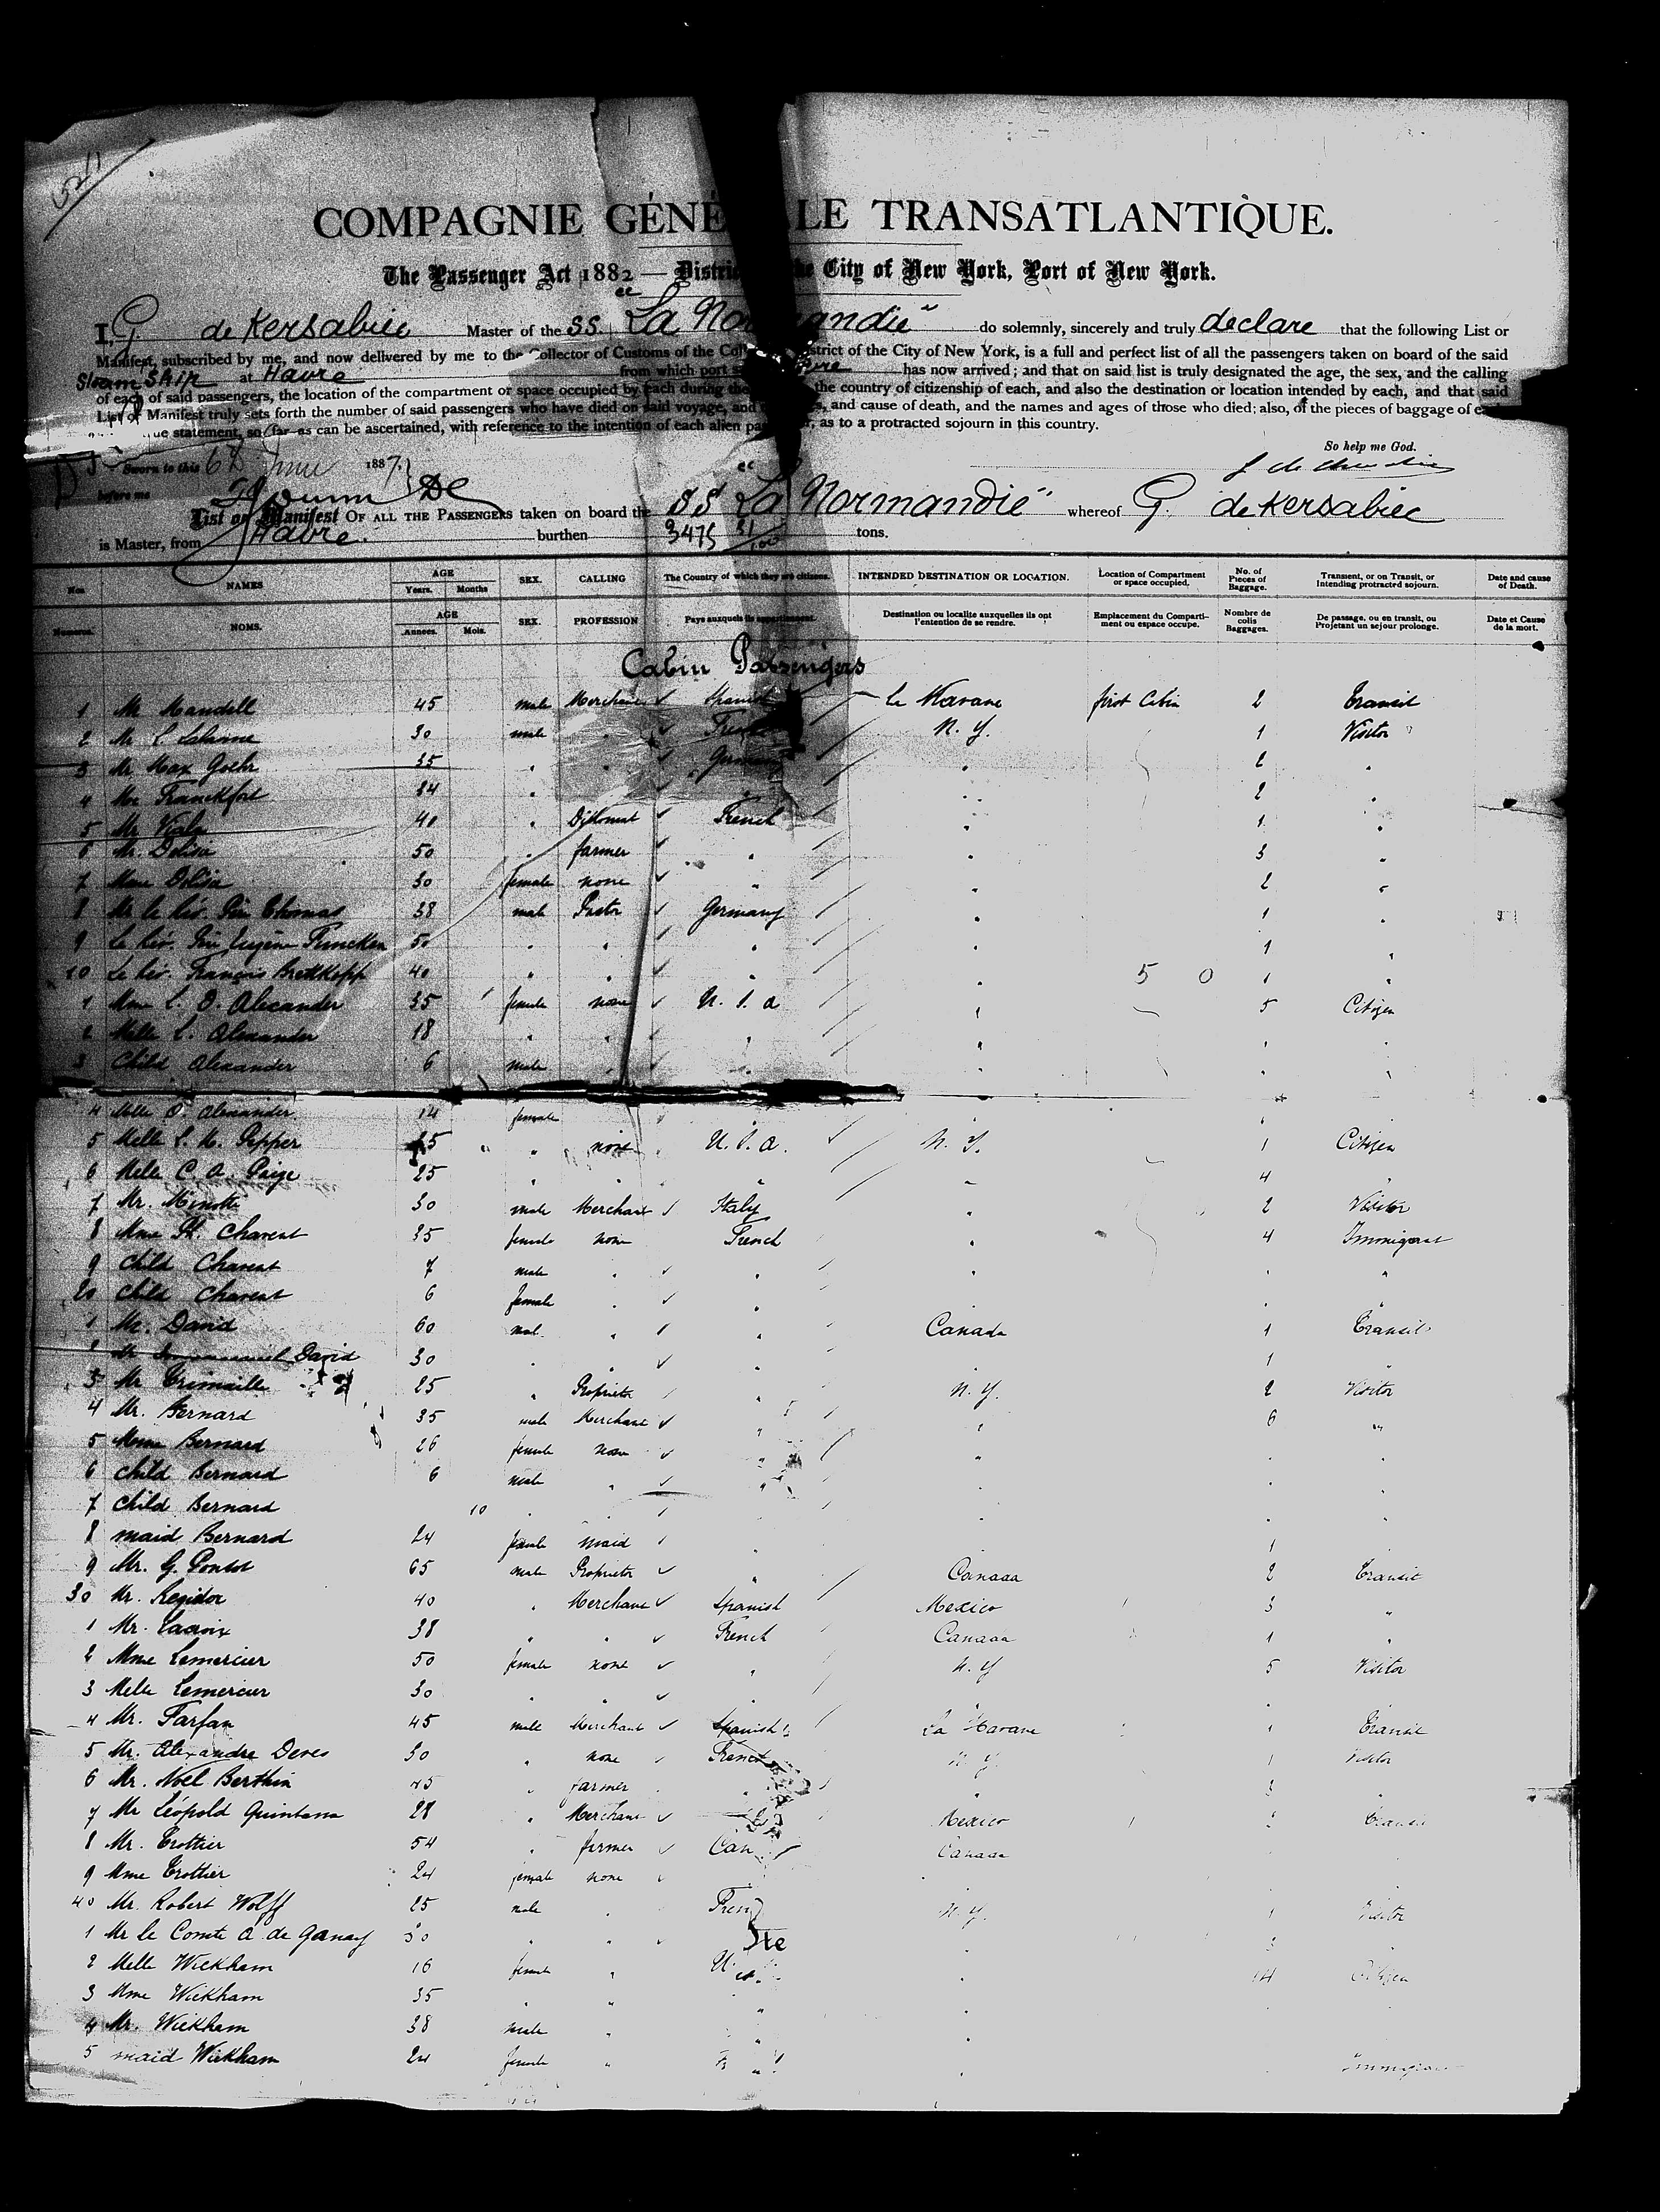 5211
COMPAGNIE GÉNÉ LE TRANSATLANTIQUE.
The Passenger Act 1882 — Distric he City of New York, Port of New York.
I, G. de Kersabiec Master of the SS. "La No andie" do solemnly, sincerely and truly declare that the following List or
Manifest, subscribed by me, and now delivered by me to the Collector of Customs of the Coll strict of the City of New York, is a full and perfect list of all the passengers taken on board of the said
Steam Ship at Havre from which port has now arrived; and that on said list is truly designated the age, the sex, and the calling
of each of said passengers, the location of the compartment or space occupied by each during the the country of citizenship of each, and also the destination or location intended by each, and that said
List or Manifest truly sets forth the number of said passengers who have died on said voyage, and and cause of death, and the names and ages of those who died; also, of the pieces of baggage of
ue statement, so far as can be ascertained, with reference to the intention of each alien pas as to a protracted sojourn in this country.
So help me God.
Sworn to this 6th June 1887
before me
List or Manifest OF ALL THE PASSENGERS taken on board the SS "La Normandie" whereof G. de Kersabiec
is Master, from Havre. burthen 3475 51/100 tons.
Nos NAMES AGE Years. Months SEX. CALLING The Country of which they are citizens. INTENDED DESTINATION OR LOCATION. Location of Compartment or space occupied. No. of Pieces of Baggage. Transient, or on Transit, or Intending protracted sojourn. Date and cause of Death.
Numeros. NOMS. AGE Annees. Mois. SEX. PROFESSION Pays auxquels ils appartiennent. Destination ou localite auxquelles ils ont l'entention de se rendre. Emplacement du Comparti- ment ou espace occupe. Nombre de colis Baggages. De passage, ou en transit, ou Projetant un sejour prolonge. Date et Cause de la mort.
Cabin Passengers
1 Mr Mandell 45 male Merchant Spanish La Havane first Cabin 2 Transit
2 Mr L. Lalanne 30 male " French N. Y. 1 Visitor
3 Mr Max Goehr 35 " " Germany " 2 "
4 Mr Franckfort 34 " " " 2 "
5 Mr Viala 40 " Diplomat French " 1 "
6 Mr. Dolisa 50 " farmer " " 3 "
7 Mme Dolisa 30 female none " " 2 "
8 Mr le Rév. Père Thomas 38 male Pastor Germany " 1 "
9 Le Rév. Père Eugène Funcken 50 " " " " 1 "
10 Le Rév. François Brettkopp 40 " " " " 5 0 1 "
1 Mme L. O. Alexander 35 female none U. S. A " 5 Citizen
2 Melle L. Alexander 18 " " " " " "
3 Child Alexander 6 male " " "
4 Melle O. Alexander 14 female
5 Melle L. K. Pepper 25 " none U. S. A. N. Y. 1 Citizen
6 Melle C. A. Paige 25 " " " " 4 "
7 Mr. Minotti 30 male Merchant Italy " 2 Visitor
8 Mme Ph. Charent 35 female none French " 4 Immigrant
9 Child Charent 7 male " " " " "
20 Child Charent 6 female " " " "
1 Mr. David 60 mal. " " Canada 1 Transit
2 David 30 " 1 "
3 Mr Trimaille 25 " Proprietor " N. Y. 2 Visitor
4 Mr. Bernard 35 male Merchant " " 6 "
5 Mme Bernard 26 female none " " " "
6 Child Bernard 6 male " " " "
7 Child Bernard 10 " " " "
8 maid Bernard 24 female maid " 1
9 Mr. G. Pontot 65 male Proprietor " Canada 2 Transit
30 Mr. Regidor 40 " Merchant Spanish Mexico 3 "
1 Mr. Lacroix 38 " " French Canada 1 "
2 Mme Lemercier 50 female none " N. Y 5 Visitor
3 Melle Lemercier 30 " " " "
4 Mr. Farfan 45 male Merchant Spanish La Havane 1 Transit
5 Mr. Alexandre Deves 30 " none French N. Y. 1 Visitor
6 Mr. Noel Berthin 45 " farmer " 3 "
7 Mr Léopold Quintana 28 " Merchant Mexico Transit
8 Mr. Trottier 54 " farmer Can Canada
9 Mme Trottier 24 female none
40 Mr. Robert Wolff 25 male " Fren N. Y. 1 Visitor
1 Mr le Comte A. de Ganay 30 " " " 3
2 Melle Wickham 16 female " U " 14 Citizen
3 Mme Wickham 35 " " "
4 Mr. Wickham 38 male " " "
5 maid Wickham 24 female " " Immigrant